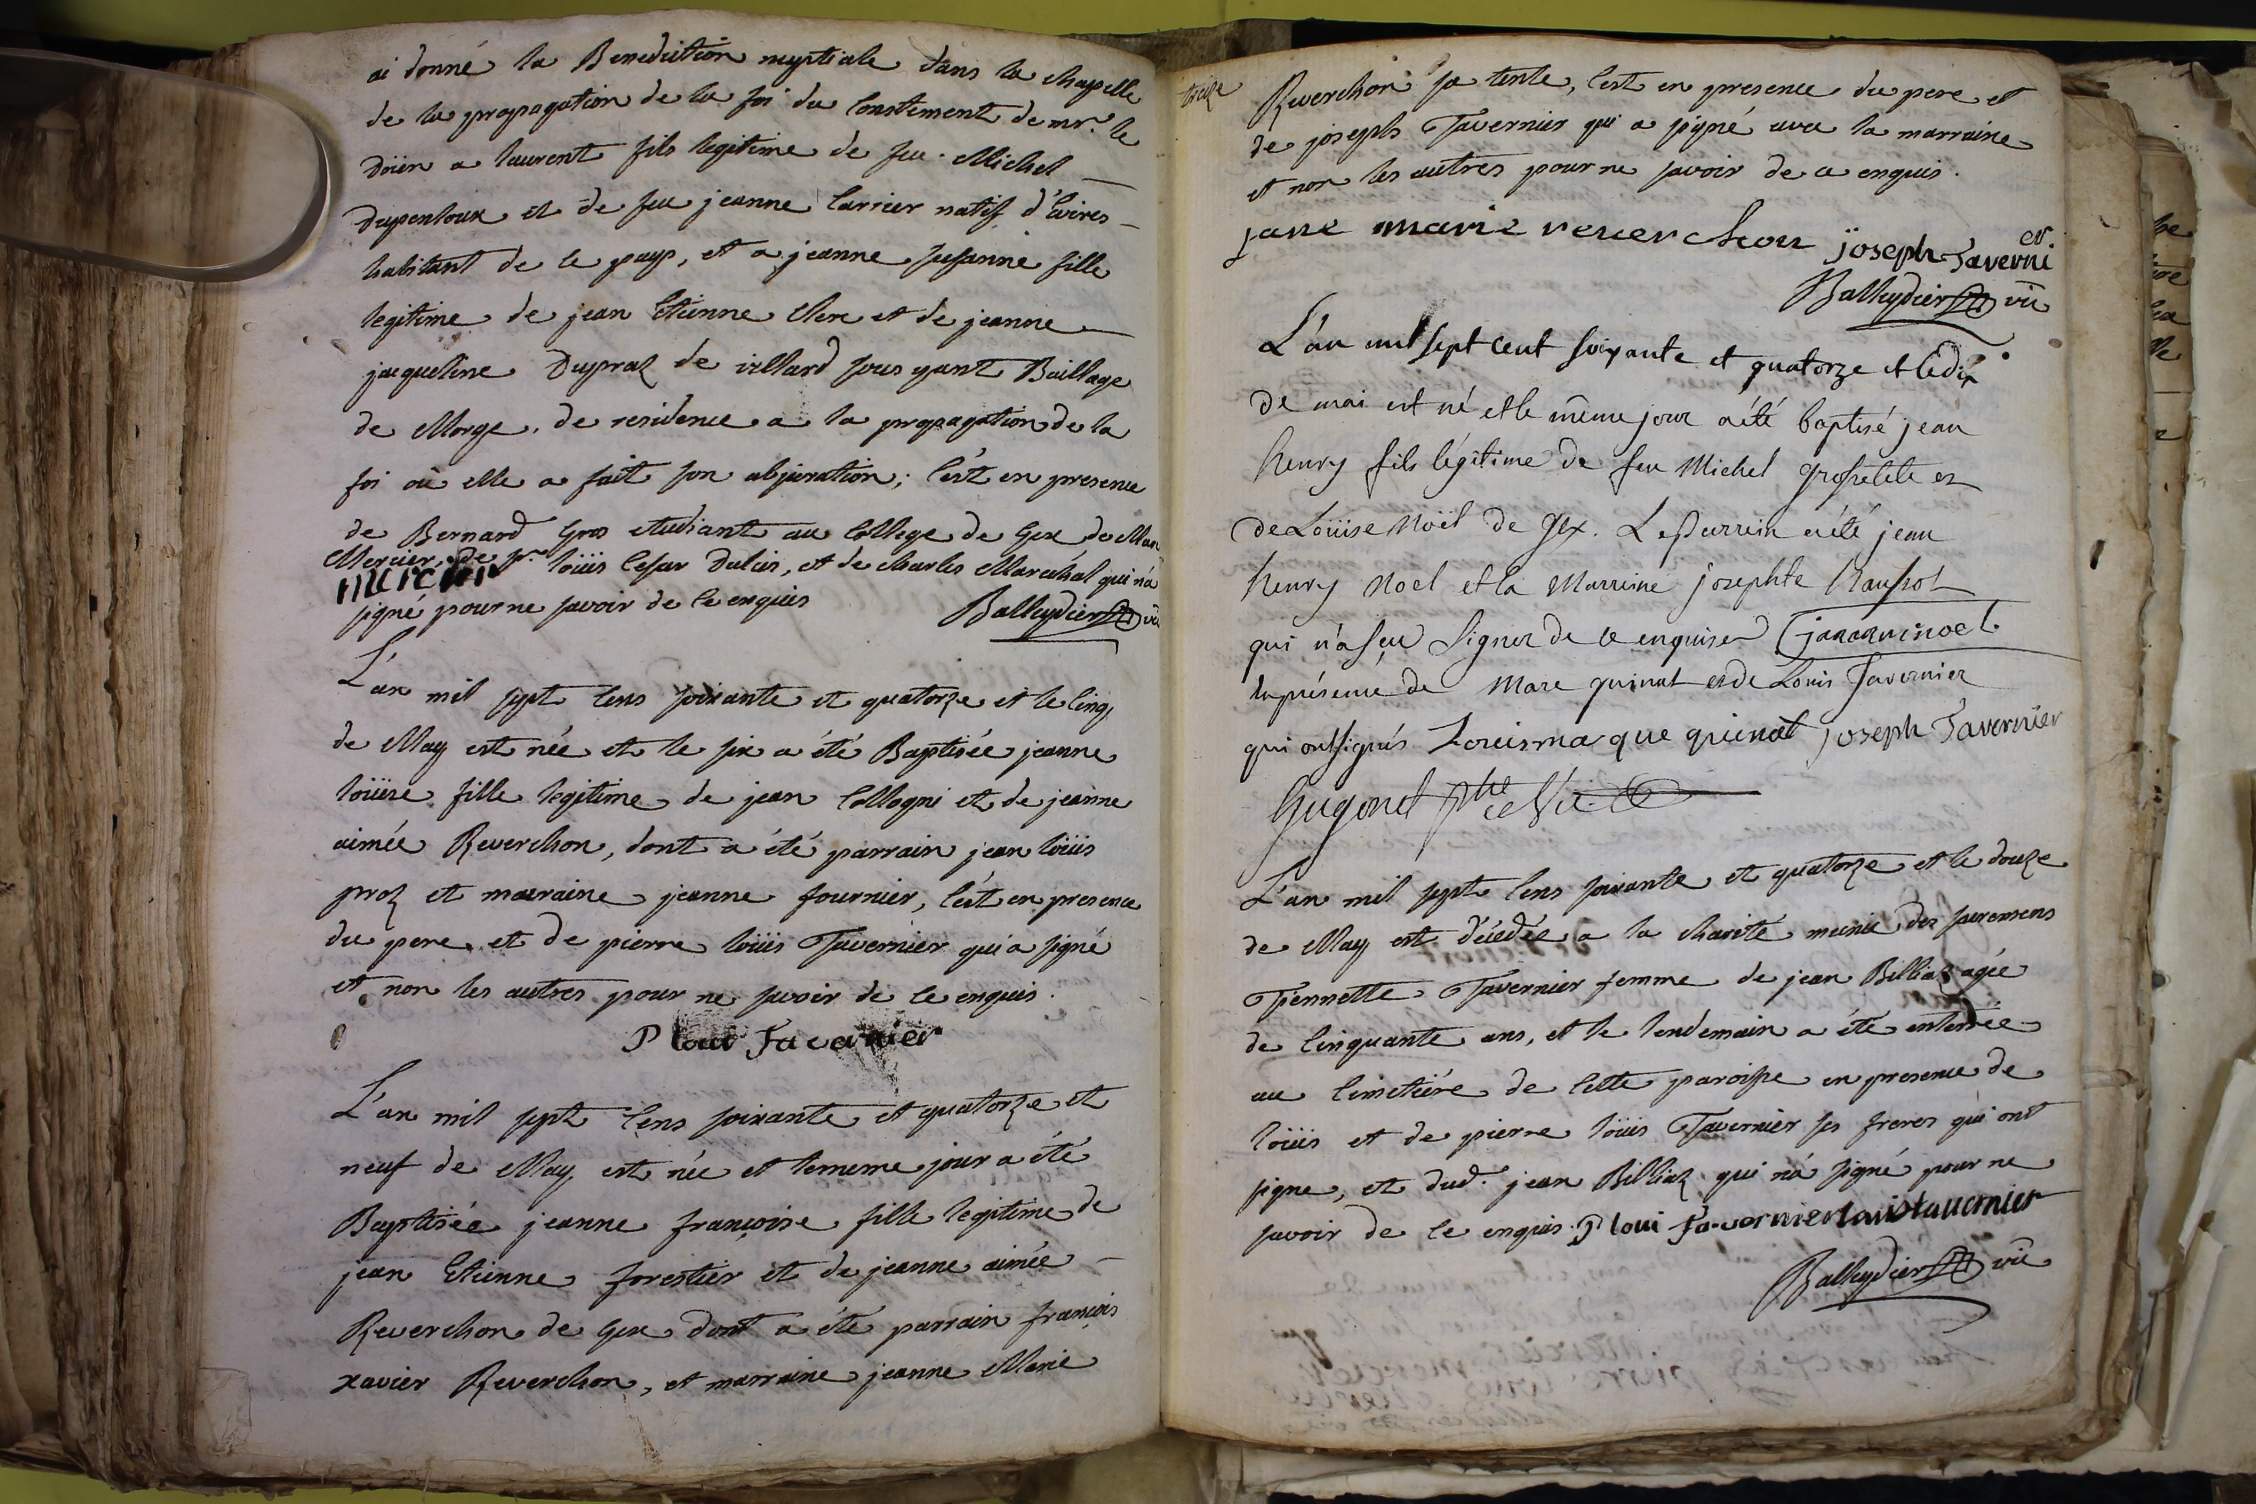 ai donné la Benediction nuptiale dans la chapelle
de la propagation de la foi du Consentement de mr. le
Doïen a laurent fils legitime de feu Michel
Dupenloux et de feu jeanne Carrier natif d'Evires
habitant de ce pays, et a jeanne susanne fille
legitime de jean Etienne Clerc et de jeanne
jacqueline Dupraz de villard sous yant Baillage
de Morge, de residence a la propagation de la
foi où elle a fait son abjuration; C'est en presence
de Bernard Gros etudiant au College de Gex de
Mercier, de loüis Cesar Dulcis, et de charles Maréchal qui n'a
mercier
signé pour ne savoir de ce enquis Balleydier vic
L'an mil sept Cens soixante et quatorze et le Cinq
de May est née et le six a été Baptisée jeanne
loüise fille legitime de jean Collogni et de jeanne
aimée Reverchon, dont a été parrain jean loüis
proz et marraine jeanne fournier, C'est en presence
du pere et de pierre loüis Tavernier qui a signé
et non les autres pour ne savoir de ce enquis.
P loui Tavernier
L'an mil sept Cens soixante et quatorze et
neuf de May est née et le meme jour a été
Baptisée jeanne françoise fille legitime de
jean Etienne forestier et de jeanne aimée
Reverchon de Gex dont a été parrain françois
xavier Reverchon, et marraine jeanne Marie
treize
Reverchon sa tente, C'est en presence du pere et
de joseph Tavernier qui a signé avec la marraine
et non les autres pour ne savoir de ce enquis.
jane marie reverchon joseph Taverni
er
Balleydier vic
L'an mil sept cent soixante et quatorze et le dix
de mai est né et le même jour a été baptisé jean
henry fils légitime de feu Michel et
de Loüise Noël de Gex. Le parrein a été jean
henry Noel et la Marreine josephte
qui n'a sçu signer de ce enquise
En présence de Marc quinat et de Louis Tavernier
qui ont signés Louis marque quinat joseph Tavernier
Gugonet ptre Vic.
L'an mil sept Cens soixante et quatorze et le douze
de May est décédée a la charité munie des sacremens
Pernette Tavernier femme de jean Billiaz agée
de Cinquante ans, et le lendemain a été enterrée
au Cimetiére de Cette paroisse en presence de
loüis et de pierre loüis Tavernier ses freres qui ont
signe, et dud. jean Billiaz qui n'a signé pour ne
savoir de ce enquis. P loui Tavernier louis tavernier
Balleydier vic